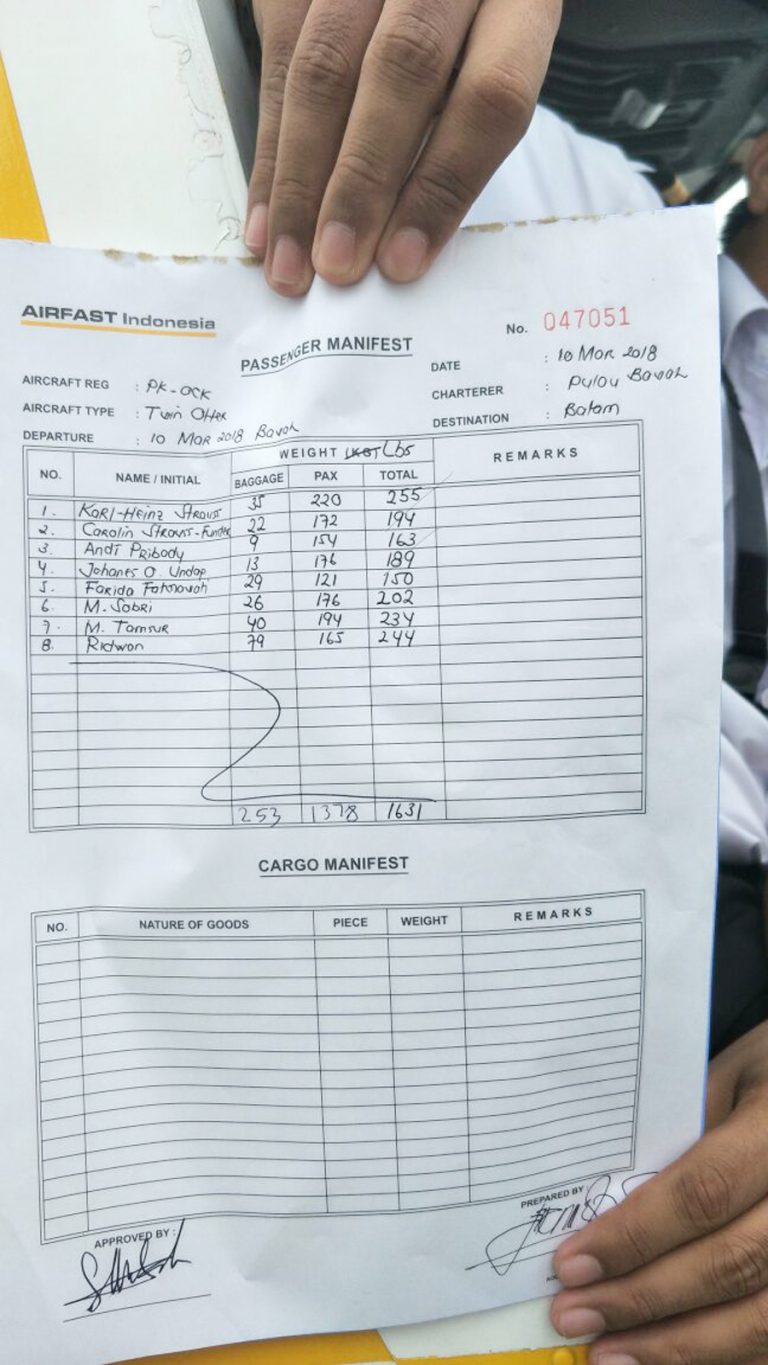 AIRFAST Indonesia
No. 047051
PASSENGER MANIFEST
AIRCRAFT REG : PK-OCK
AIRCRAFT TYPE : Twin Otter
DEPARTURE : 10 Mar 2018 Bawah
DATE : 10 Mar 2018
CHARTERER : Pulau Bawah
DESTINATION : Batam
NO. NAME / INITIAL WEIGHT (KGS) Lbs REMARKS
BAGGAGE PAX TOTAL
1. Karl-Heinz Strauss 35 220 255
2. Carolin Strauss-Funder 22 172 194
3. Andi Pribody 9 154 163
4. Johanes O. Undap 13 176 189
5. Farida Fatmawah 29 121 150
6. M. Sabri 26 176 202
7. M. Tamsur 40 194 234
8. Ridwan 79 165 244
253 1378 1631
CARGO MANIFEST
NO. NATURE OF GOODS PIECE WEIGHT REMARKS
APPROVED BY :
PREPARED BY